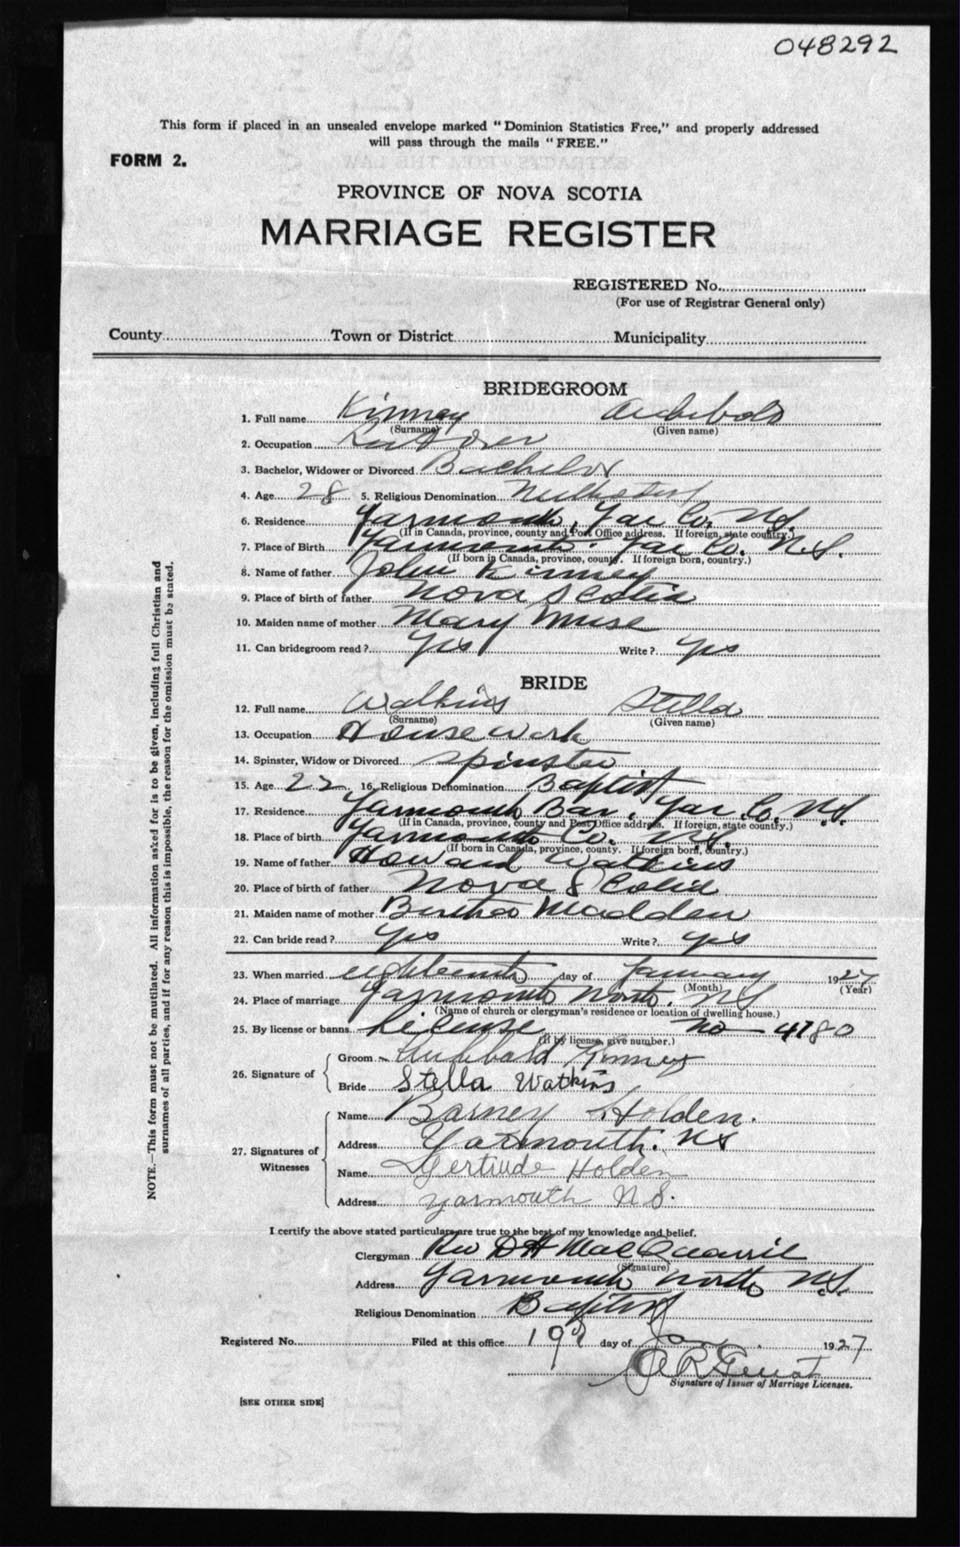 048292
This form if placed in an unsealed envelope marked "Dominion Statistics Free," and properly addressed
will pass through the mails "FREE."
FORM 2.
PROVINCE OF NOVA SCOTIA
MARRIAGE REGISTER
REGISTERED No.
(For use of Registrar General only)
County Town or District Municipality
BRIDEGROOM
1. Full name Kinney Archibald
(Surname) (Given name)
2. Occupation
3. Bachelor, Widower or Divorced Bachelor
4. Age 28 5. Religious Denomination Methodist
6. Residence Yarmouth, Yar Co. N.S.
(If in Canada, province, county and Post Office address. If foreign, state country.)
7. Place of Birth Yarmouth. Yar Co. N.S.
(If born in Canada, province, county. If foreign born, country.)
8. Name of father John Kinney
9. Place of birth of father Nova Scotia
10. Maiden name of mother Mary Muise
11. Can bridegroom read? Yes Write? Yes
BRIDE
12. Full name Watkins Stella
(Surname) (Given name)
13. Occupation House work
14. Spinster, Widow or Divorced Spinster
15. Age 22 16. Religious Denomination Baptist
17. Residence Yarmouth Bar, Yar. Co. N.S.
(If in Canada, province, county and Post Office address. If foreign, state country.)
18. Place of birth Yarmouth Co. N.S.
(If born in Canada, province, county. If foreign born, country.)
19. Name of father Howard Watkins
20. Place of birth of father Nova Scotia
21. Maiden name of mother Bertha Madden
22. Can bride read? Yes Write? Yes
23. When married eighteenth day of January 1927
(Month) (Year)
24. Place of marriage Yarmouth North. N.S.
(Name of church or clergyman's residence or location of dwelling house.)
25. By license or banns License No 4780
(If by license, give number.)
26. Signature of
Groom Archibald Kinney
Bride Stella Watkins
27. Signatures of Witnesses
Name Barney Holden.
Address Yarmouth. NS
Name Gertrude Holden
Address yarmouth N.S.
I certify the above stated particulars are true to the best of my knowledge and belief.
Clergyman Rev D H MacQuarrie
(Signature)
Address Yarmouth North N.S.
Religious Denomination Baptist
Registered No. Filed at this office 19th day of Jan. 1927
Signature of Issuer of Marriage Licenses.
[SEE OTHER SIDE]
NOTE.—This form must not be mutilated. All information asked for is to be given, including full Christian and
surnames of all parties, and if for any reason this is impossible, the reason for the omission must be stated.